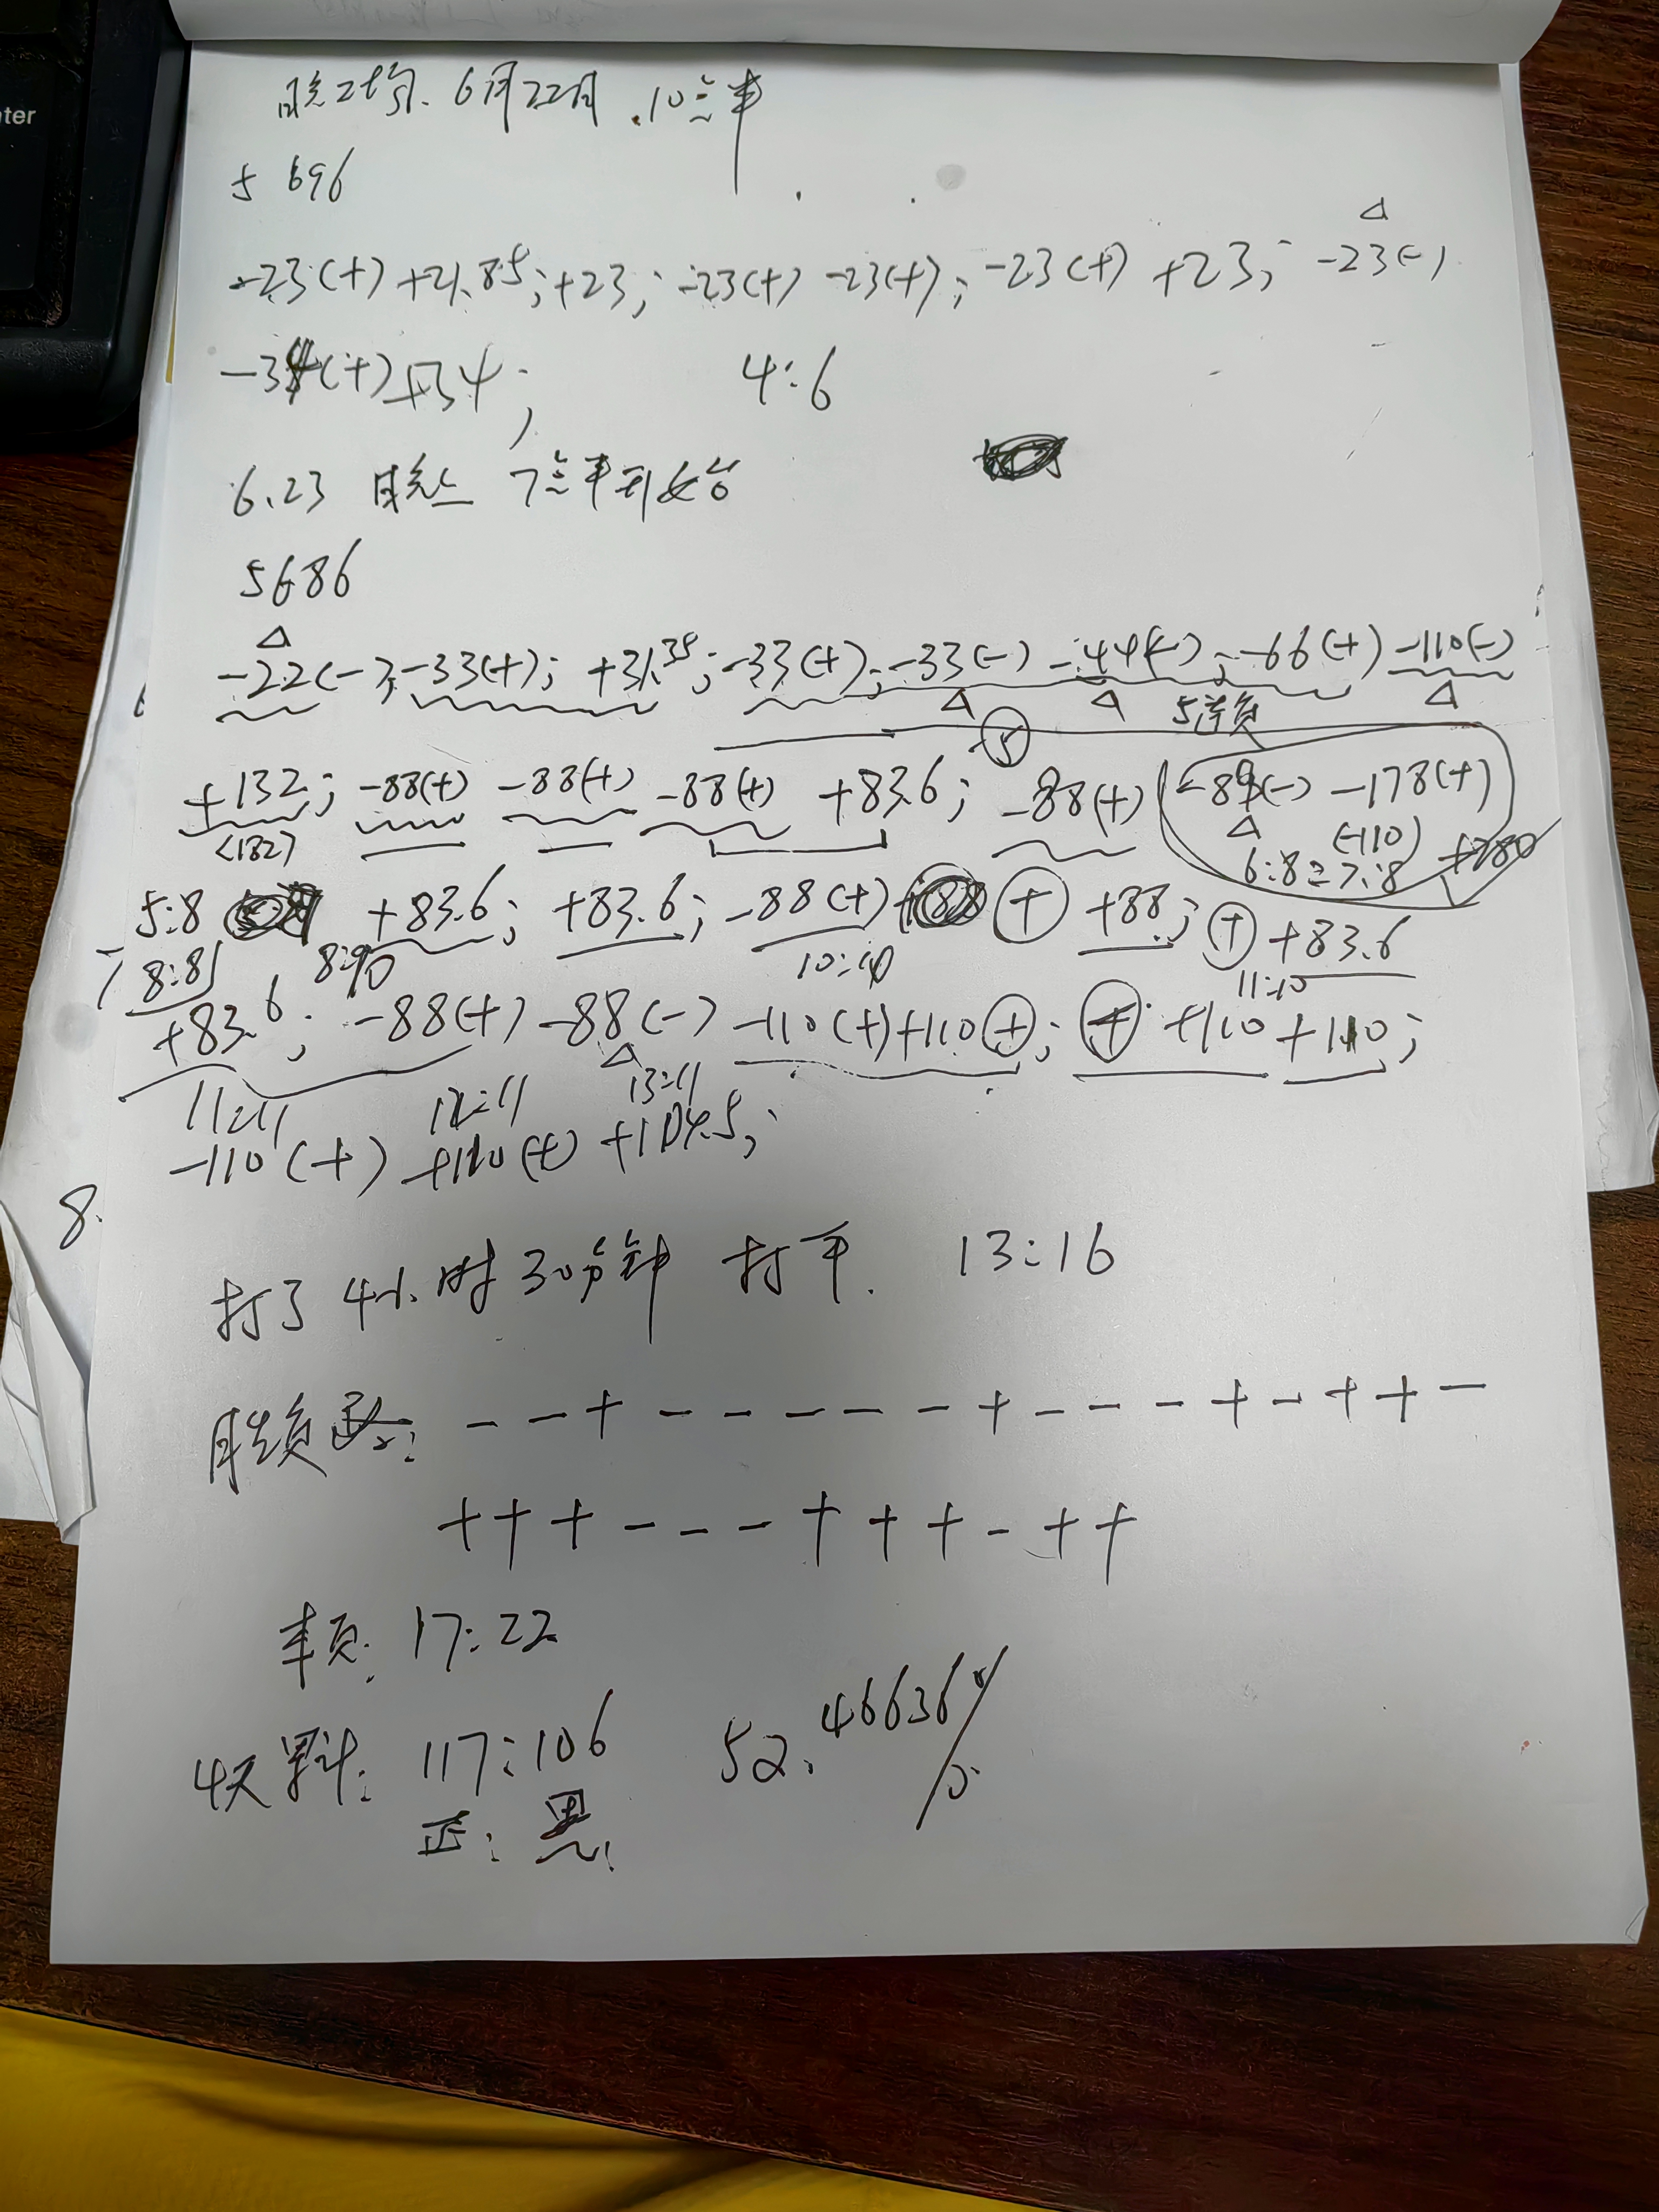 6月22日.10点半
5696
-23(+) +21.85; +23; -23(+) -23(+); -23(+) +23; -23(-)
-34(+) +34; 4:6
6.23 晚上 7点半开始
5686
-22(-), -33(+); +31.35; -33(+); -33(-) -44(-); -66(+) -110(-)
5连负
+132; -88(+) -88(+) -88(+) +83.6; -88(+) -89(-) -178(+)
(132) (-110)
6:8 = 7:8 +280
5:8 +83.6; +83.6; -88(+) + +88; + +83.6
8:8 10:10 11:10
+83.6; -88(+) -88(-) -110(+) +110 +; + +110 +110;
11:11 12:11 13:11
-110(+) +110(+) +104.5;
8.
打了4小时30分钟 打平. 13:16
胜负路: - - + - - - - - + - - - + - + + -
+ + + - - - + + + - + +
本页: 17:22
4天累计: 117:106 52.46636%
正:黑